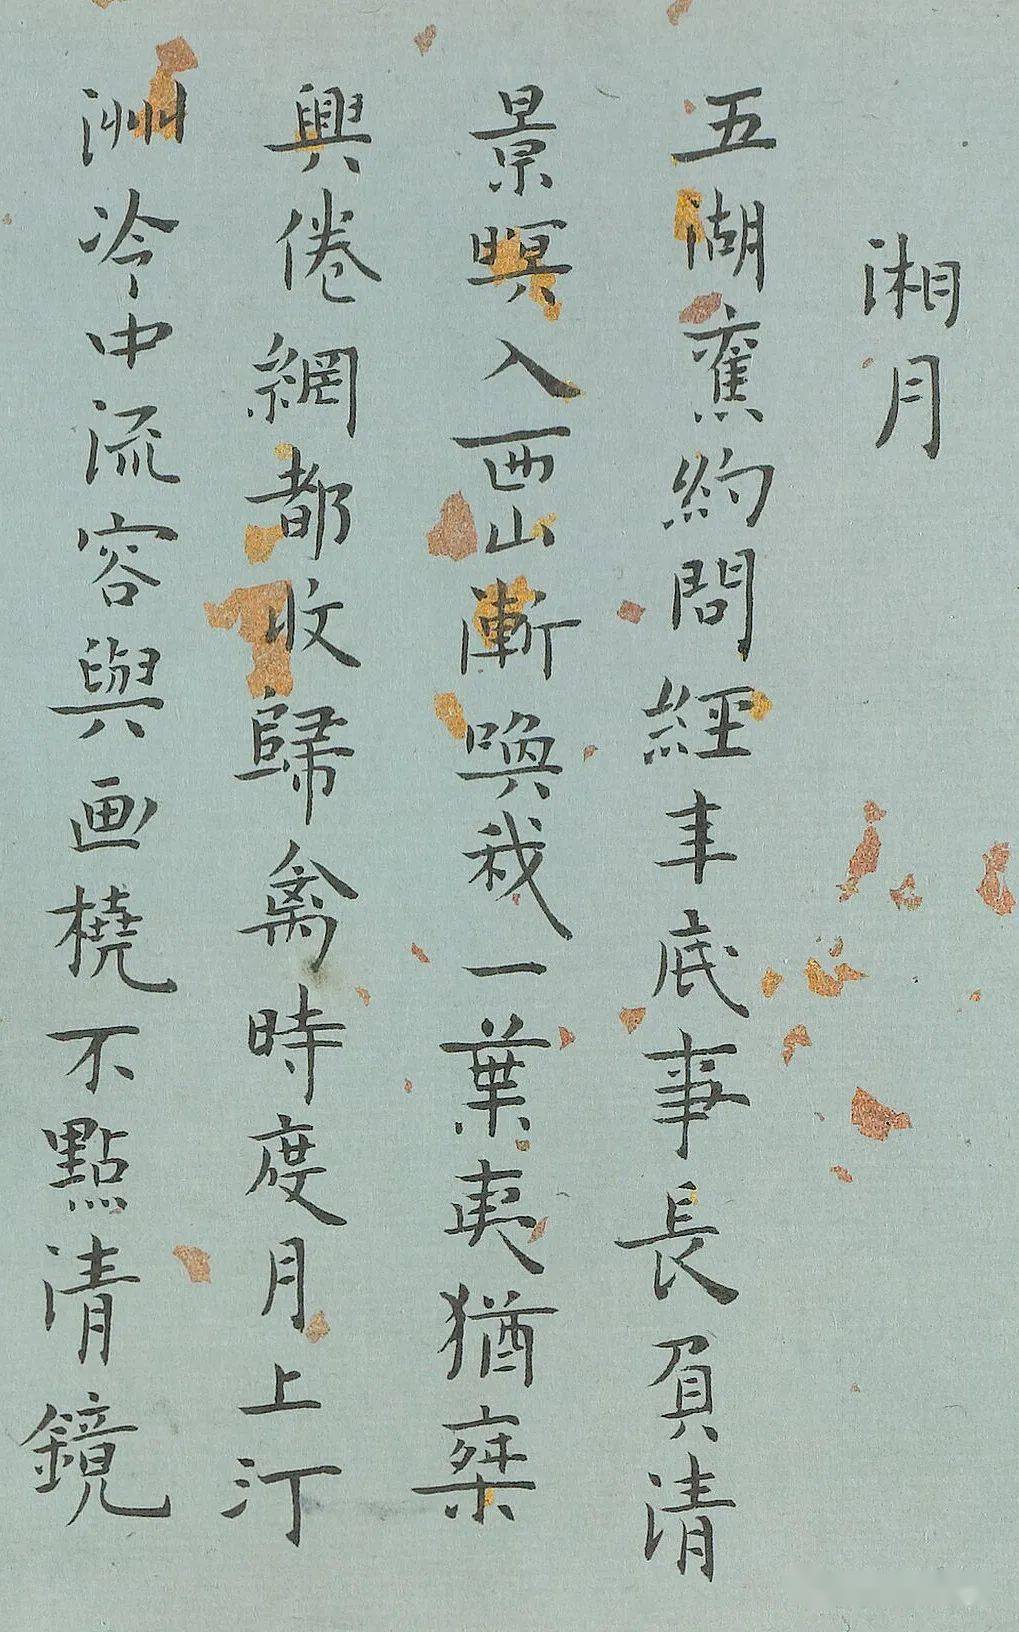 湘月
五湖舊約問經年底事長負清
景暝入西山漸喚我一葉夷猶乗
興倦網都收歸禽時度月上汀
洲冷中流容與画橈不點清鏡